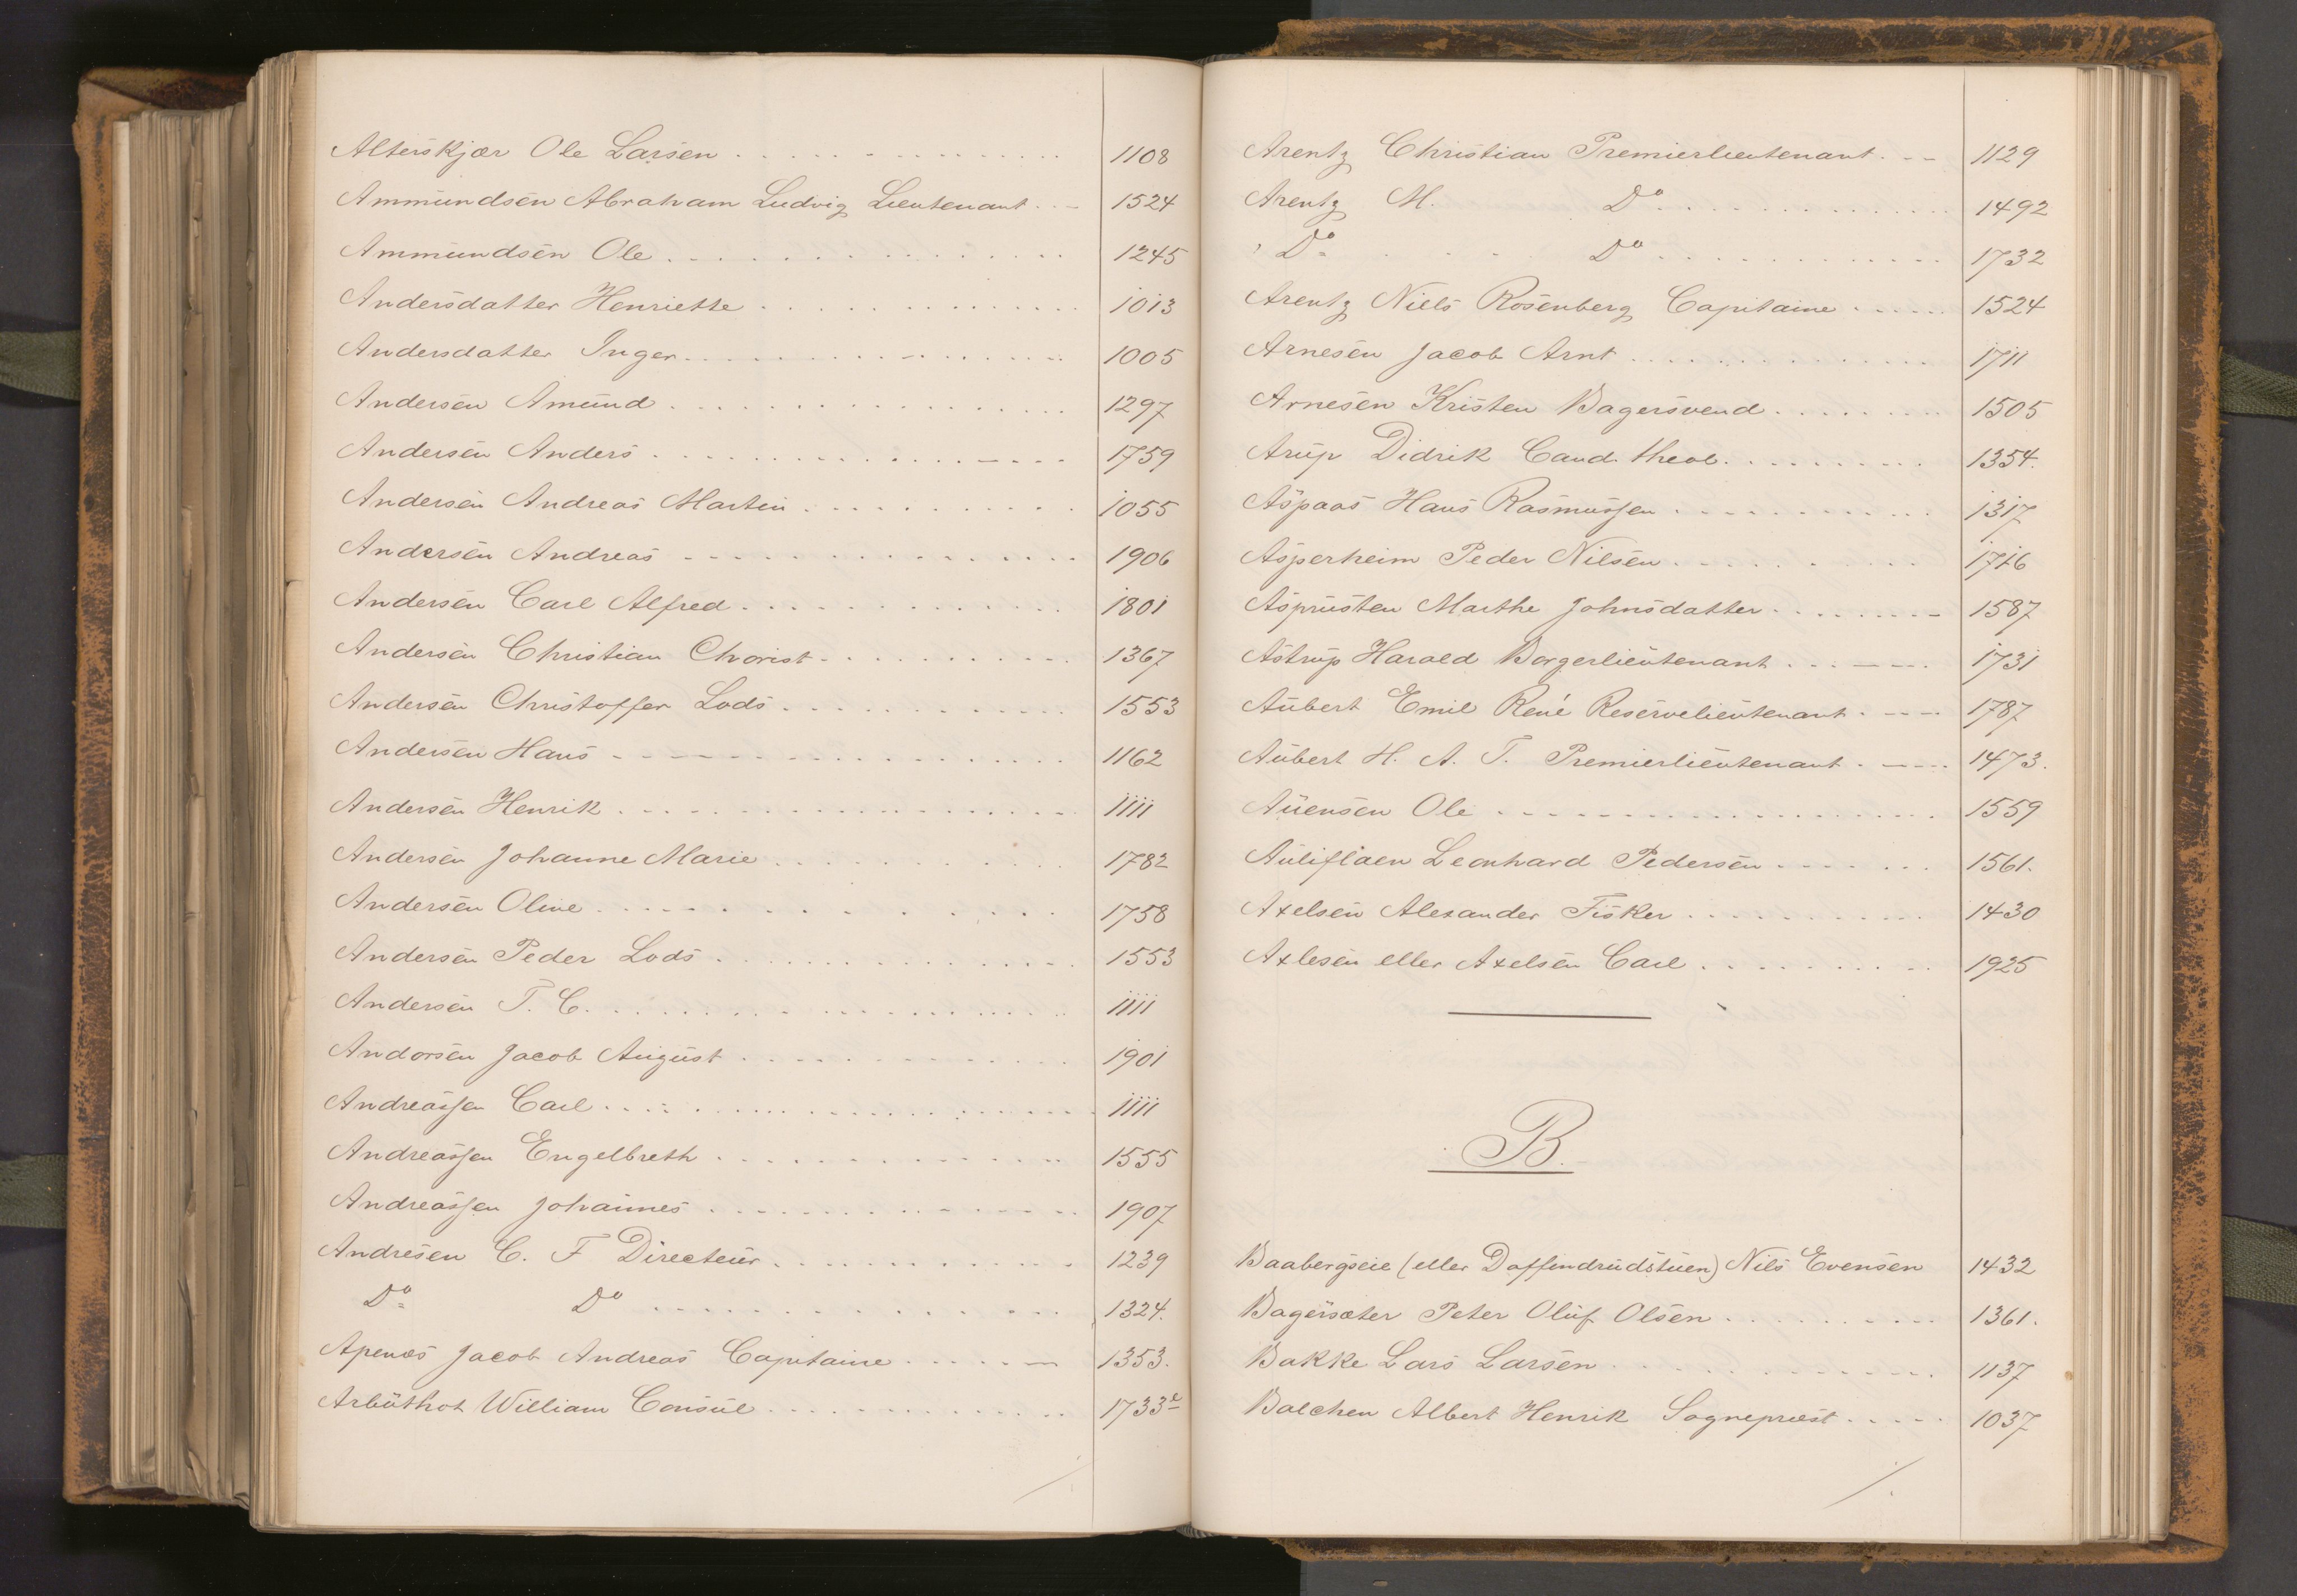 Alterskjær Ole Larsen 1108
Ammundsen Abraham Ludvig Lieutenant 1524
Ammundsen Ole 1245
Andersdatter Henriette 1013
Andersdatter Inger 1005
Andersen Amund 1297
Andersen Anders 1759
Andersen Andreas Martin 1055
Andersen Andreas 1906
Andersen Carl Alfred 1801
Andersen Christian Chorist 1367
Andersen Christoffer Lods 1553
Andersen Hans 1162
Andersen Henrik 1111
Andersen Johanne Marie 1782
Andersen Oline 1758
Andersen Peder Lods 1553
Andersen T. C. 1111
Andorsen Jacob August 1901
Andreassen Carl 1111
Andreassen Engelbreth 1555
Andreassen Johannes 1907
Andresen C. F Directeur 1239
Do Do 1324.
Apenæs Jacob Andreas Capitaine 1353.
Arbuthot William Consul 1733c
Arentz Christian Premierlieutenant 1129
Arentz M. Do 1492
Do Do 1732
Arentz Niels Rosenberg Capitaine 1524
Arnesen Jacob Arnt 1711
Arnesen Kristen Bagersvend 1505
Arup Didrik Cand. theol. 1354.
Aspaas Hans Rasmussen 1317
Asperheim Peder Nilsen 1716
Asprusten Marthe Johnsdatter 1587
Astrup Harald Borgerlieutenant 1731
Aubert Emil René Reservelieutenant 1787
Aubert H. A. T. Premierlieutenant 1473.
Auensen Ole 1559
Auliflaen Leonhard Pedersen 1561.
Axelsen Alexander Fisker 1430
Axlesen eller Axelsen Carl 1925
B.
Baabergseie (eller Doffendrudstuen) Nils Evensen 1432
Bagersæter Peter Oluf Olsen 1361.
Bakke Lars Larsen 1137
Balchen Albert Henrik Sognepræst 1037